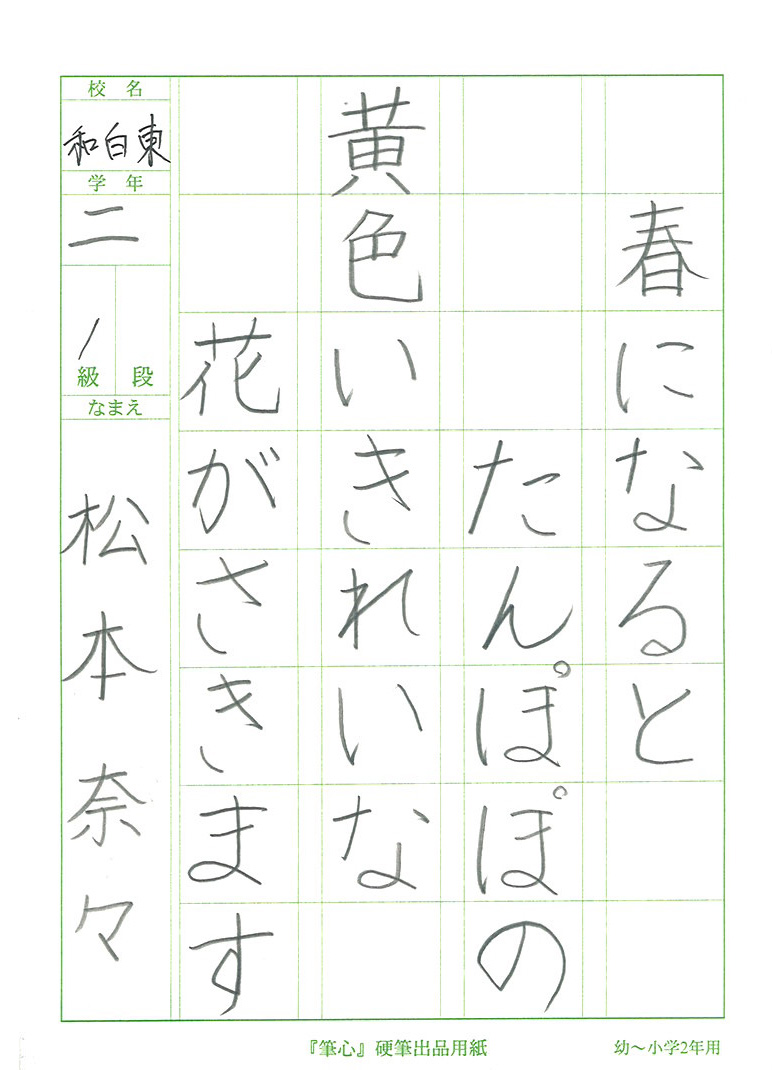 春になると
たんぽぽの
黄色いきれいな
花がさきます
校名
和白東
学年
二
級 段
/
なまえ
松本奈々
『筆心』硬筆出品用紙
幼〜小学2年用